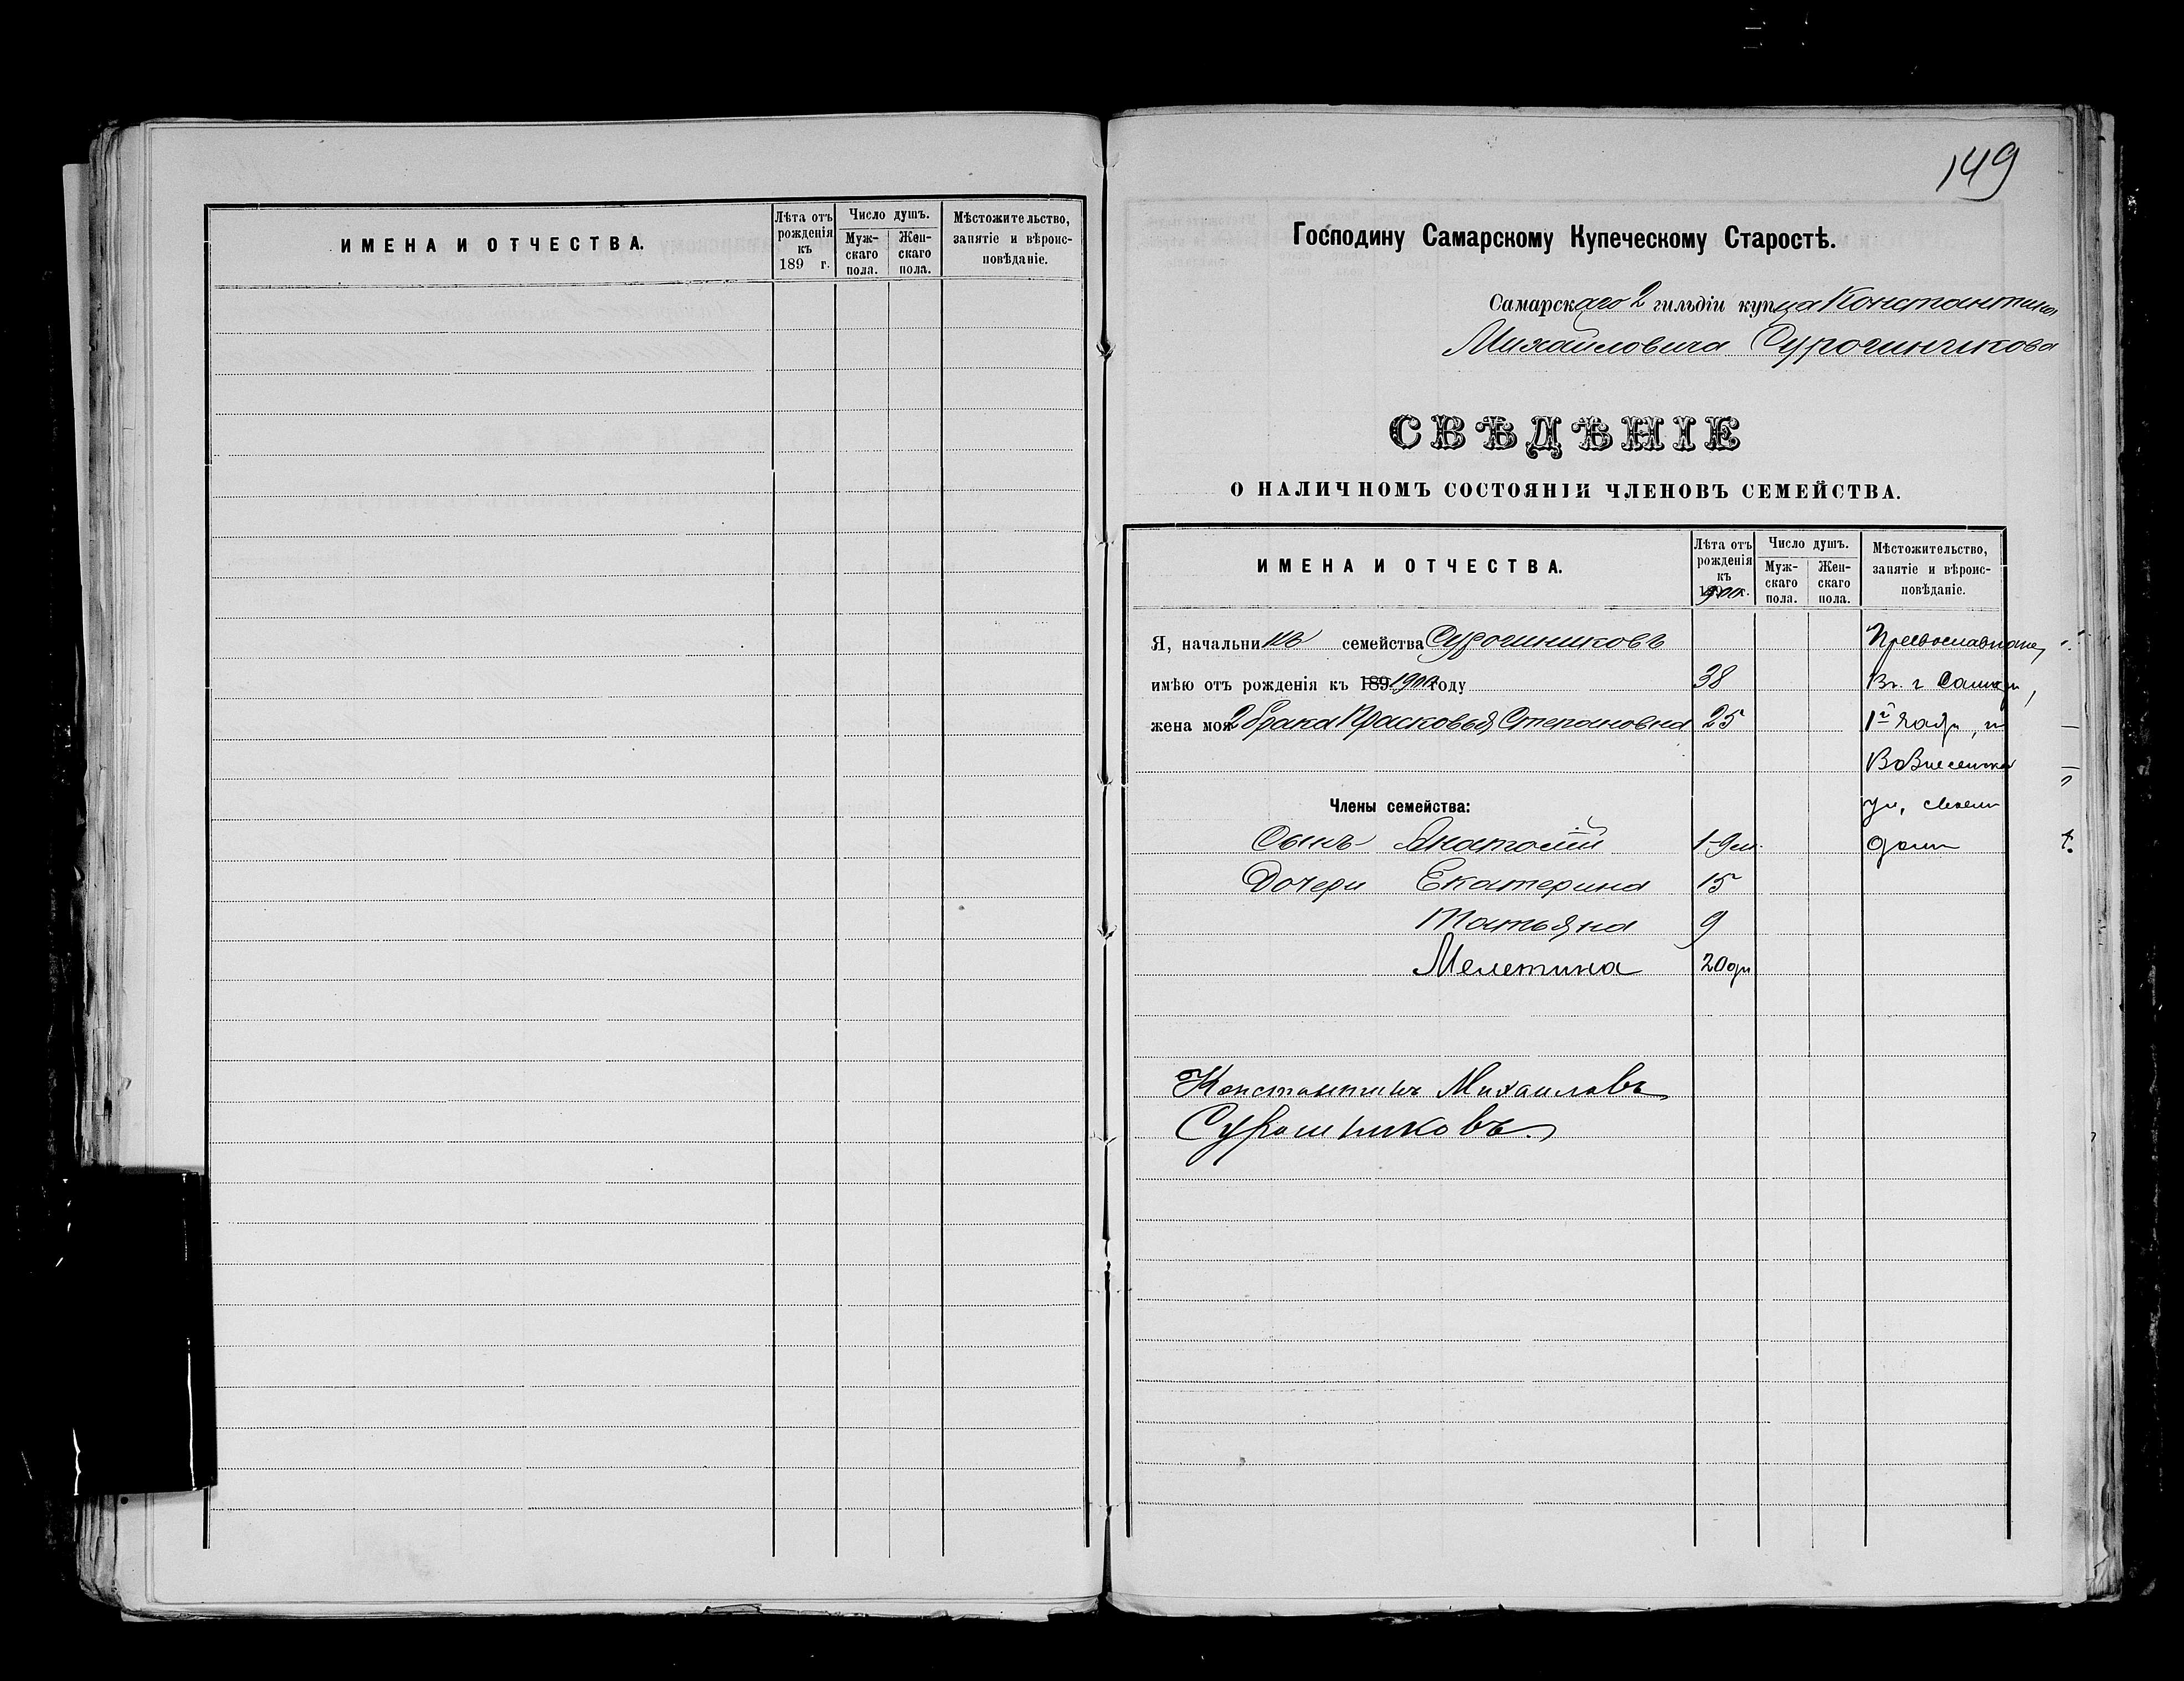 ИМЕНА И ОТЧЕСТВА.
Лѣта отъ рожденія къ 189 г.
Число душъ.
Муж-скаго пола.
Жен-скаго пола.
Мѣстожительство, занятіе и вѣроис-повѣданіе.
149
Господину Самарскому Купеческому Старостѣ.
Самарскаго 2 гильдіи купца Константина
Михайловича Сурошникова
СВѢДѢНІЕ
О НАЛИЧНОМЪ СОСТОЯНІИ ЧЛЕНОВЪ СЕМЕЙСТВА.
ИМЕНА И ОТЧЕСТВА.
Лѣта отъ рожденія къ 1900 г.
Число душъ.
Муж-скаго пола.
Жен-скаго пола.
Мѣстожительство, занятіе и вѣроис-повѣданіе.
Я, начальникъ семейства Сурошниковъ Православные,
имѣю отъ рожденія къ 189 1900 году 38 Въ г Самарѣ,
жена моя 2 брака Прасковья Степановна 25 1й части
Вознесенская
Члены семейства: ул, своем
Сынъ Анатолій 1-9м. доми
Дочери Екатерина 15
Татьяна 9
Мелетина 20дн
Константинъ Михаиловъ
Сурошниковъ.